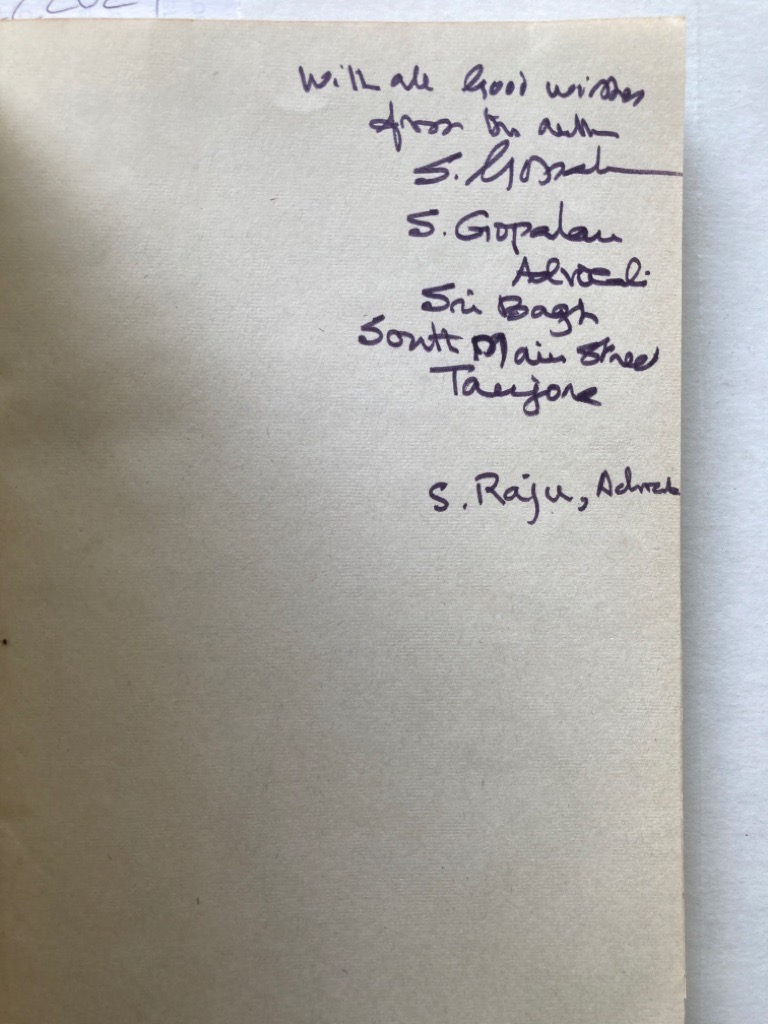 2021
With all Good wishes
from the author
S. Gopalan
S. Gopalan
Advocate
Sri Bagh
South Main Street
Tanjore
S. Raju, Advocate